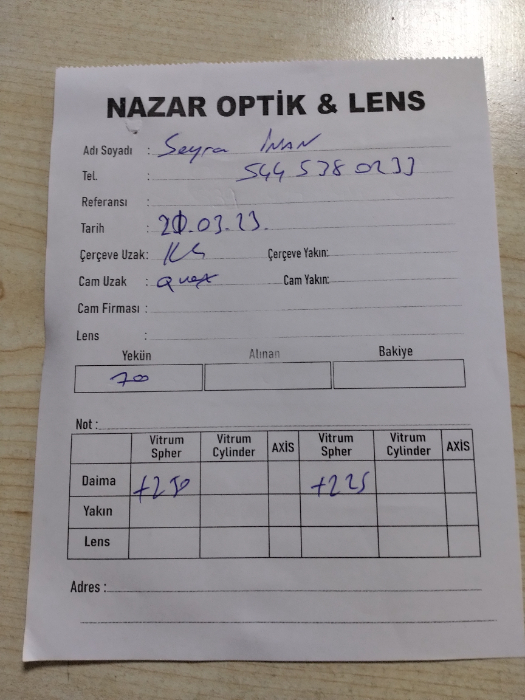 NAZAR OPTİK & LENS
Adı Soyadı : Seyra İNAN
Tel. : 544 538 0233
Referansı :
Tarih : 20.03.23.
Çerçeve Uzak: Çerçeve Yakın:
Cam Uzak : Cam Yakın:
Cam Firması :
Lens :
Yekün Alınan Bakiye
700
Not :
Vitrum Spher Vitrum Cylinder AXİS Vitrum Spher Vitrum Cylinder AXİS
Daima +250 +225
Yakın
Lens
Adres :